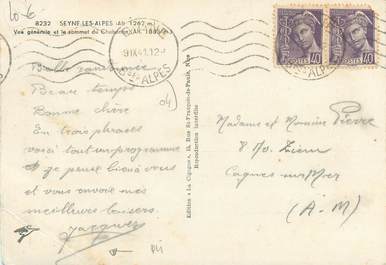 Lo-6
8232 SEYNE-LES-ALPES (Alt. 1262 m.)
Vue générale et le sommet du Chabrières
9 IX 41. 12
Bses ALPES
04
Belle randonnée
Beau temps
Bonne chère
En trois phrases
voici tout un programme
je pense bien à vous
et vous envoie mes
meilleurs baisers.
Jacques
Edition « La Cigogne », 15, Rue St-François-de-Paule, Nice
Reproduction interdite
POSTES 40
POSTES 40
ALPES
Madame et Monsieur Pierre
8 Bd
Cagnes sur Mer
(A-M)